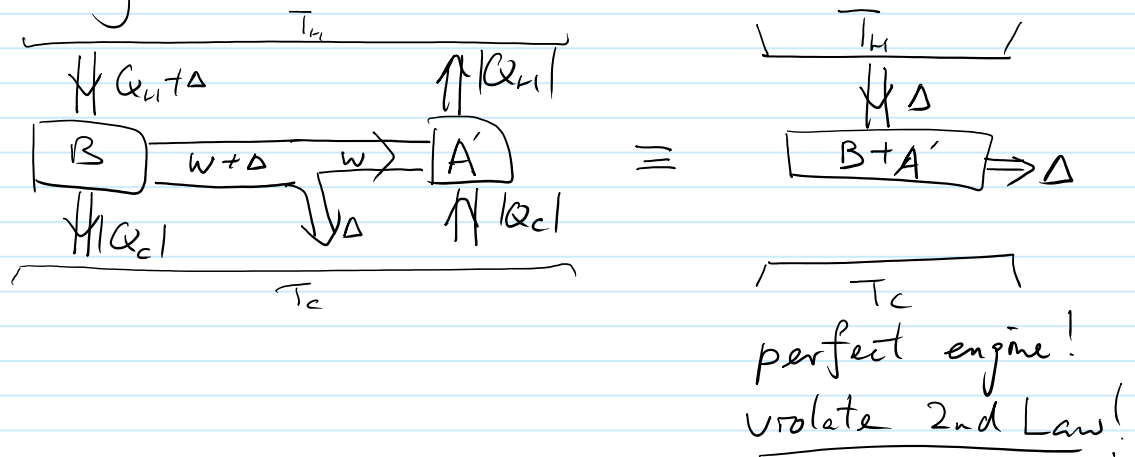 T_H
Q_H+Δ
|Q_H|
B
W+Δ
W
A′
Δ
|Q_c|
|Q_c|
T_c
≡
T_H
Δ
B+A′
Δ
T_c
perfect engine!
violate 2nd Law!